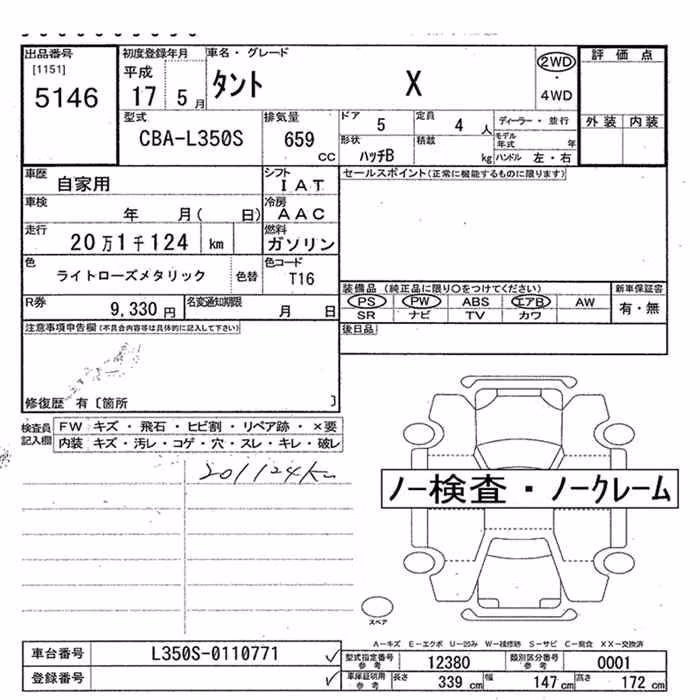 出品番号
[1151]
5146
初度登録年月
平成
17 5月
車名・グレード
タント X
2WD
・
4WD
評価点
外装 内装
型式
CBA-L350S
排気量
659
CC
ドア
5
定員
4 人
ディーラー・並行
形状
ハッチB
積載
kg
モデル年式 年
ハンドル 左・右
車歴
自家用
シフト
IAT
セールスポイント(正常に機能するものに限ります)
車検
年 月( 日)
冷房
AAC
走行
20万1千124 km
燃料
ガソリン
色
ライトローズメタリック
色替
色コード
T16
装備品 (純正品に限り○をつけてください)
新車保証書
PS PW ABS エアB AW
SR ナビ TV カワ
有・無
R券
9,330 円
名変通知期限
月 日
後日品
注意事項申告欄(不具合内容等は具体的に記入して下さい)
修復歴 有〔箇所 〕
検査員
記入欄
FW キズ・飛石・ヒビ割・リペア跡・×要
内装 キズ・汚レ・コゲ・穴・スレ・キレ・破レ
201124km
ノー検査・ノークレーム
スペア
A-キズ E-エクボ U-凹み W-補修跡 S-サビ C-腐食 XX-交換済
車台番号
L350S-0110771
登録番号
型式指定番号
参考
12380
類別区分番号
参考
0001
車庫証明用
参考
長さ
339 cm
幅
147 cm
高さ
172 cm